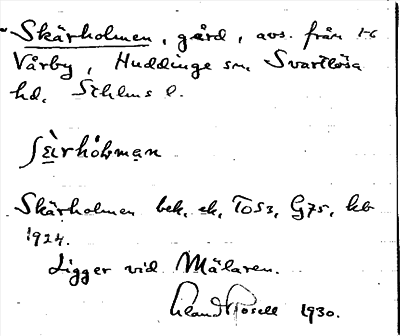 Skärholmen, gård, avs. från 1/6
Vårby, Huddinge sn, Svartlösa
hd. Sthlms l.
Skärholmen bek. ek. T053, G75, kb
1924.
Ligger vid Mälaren.
1930.